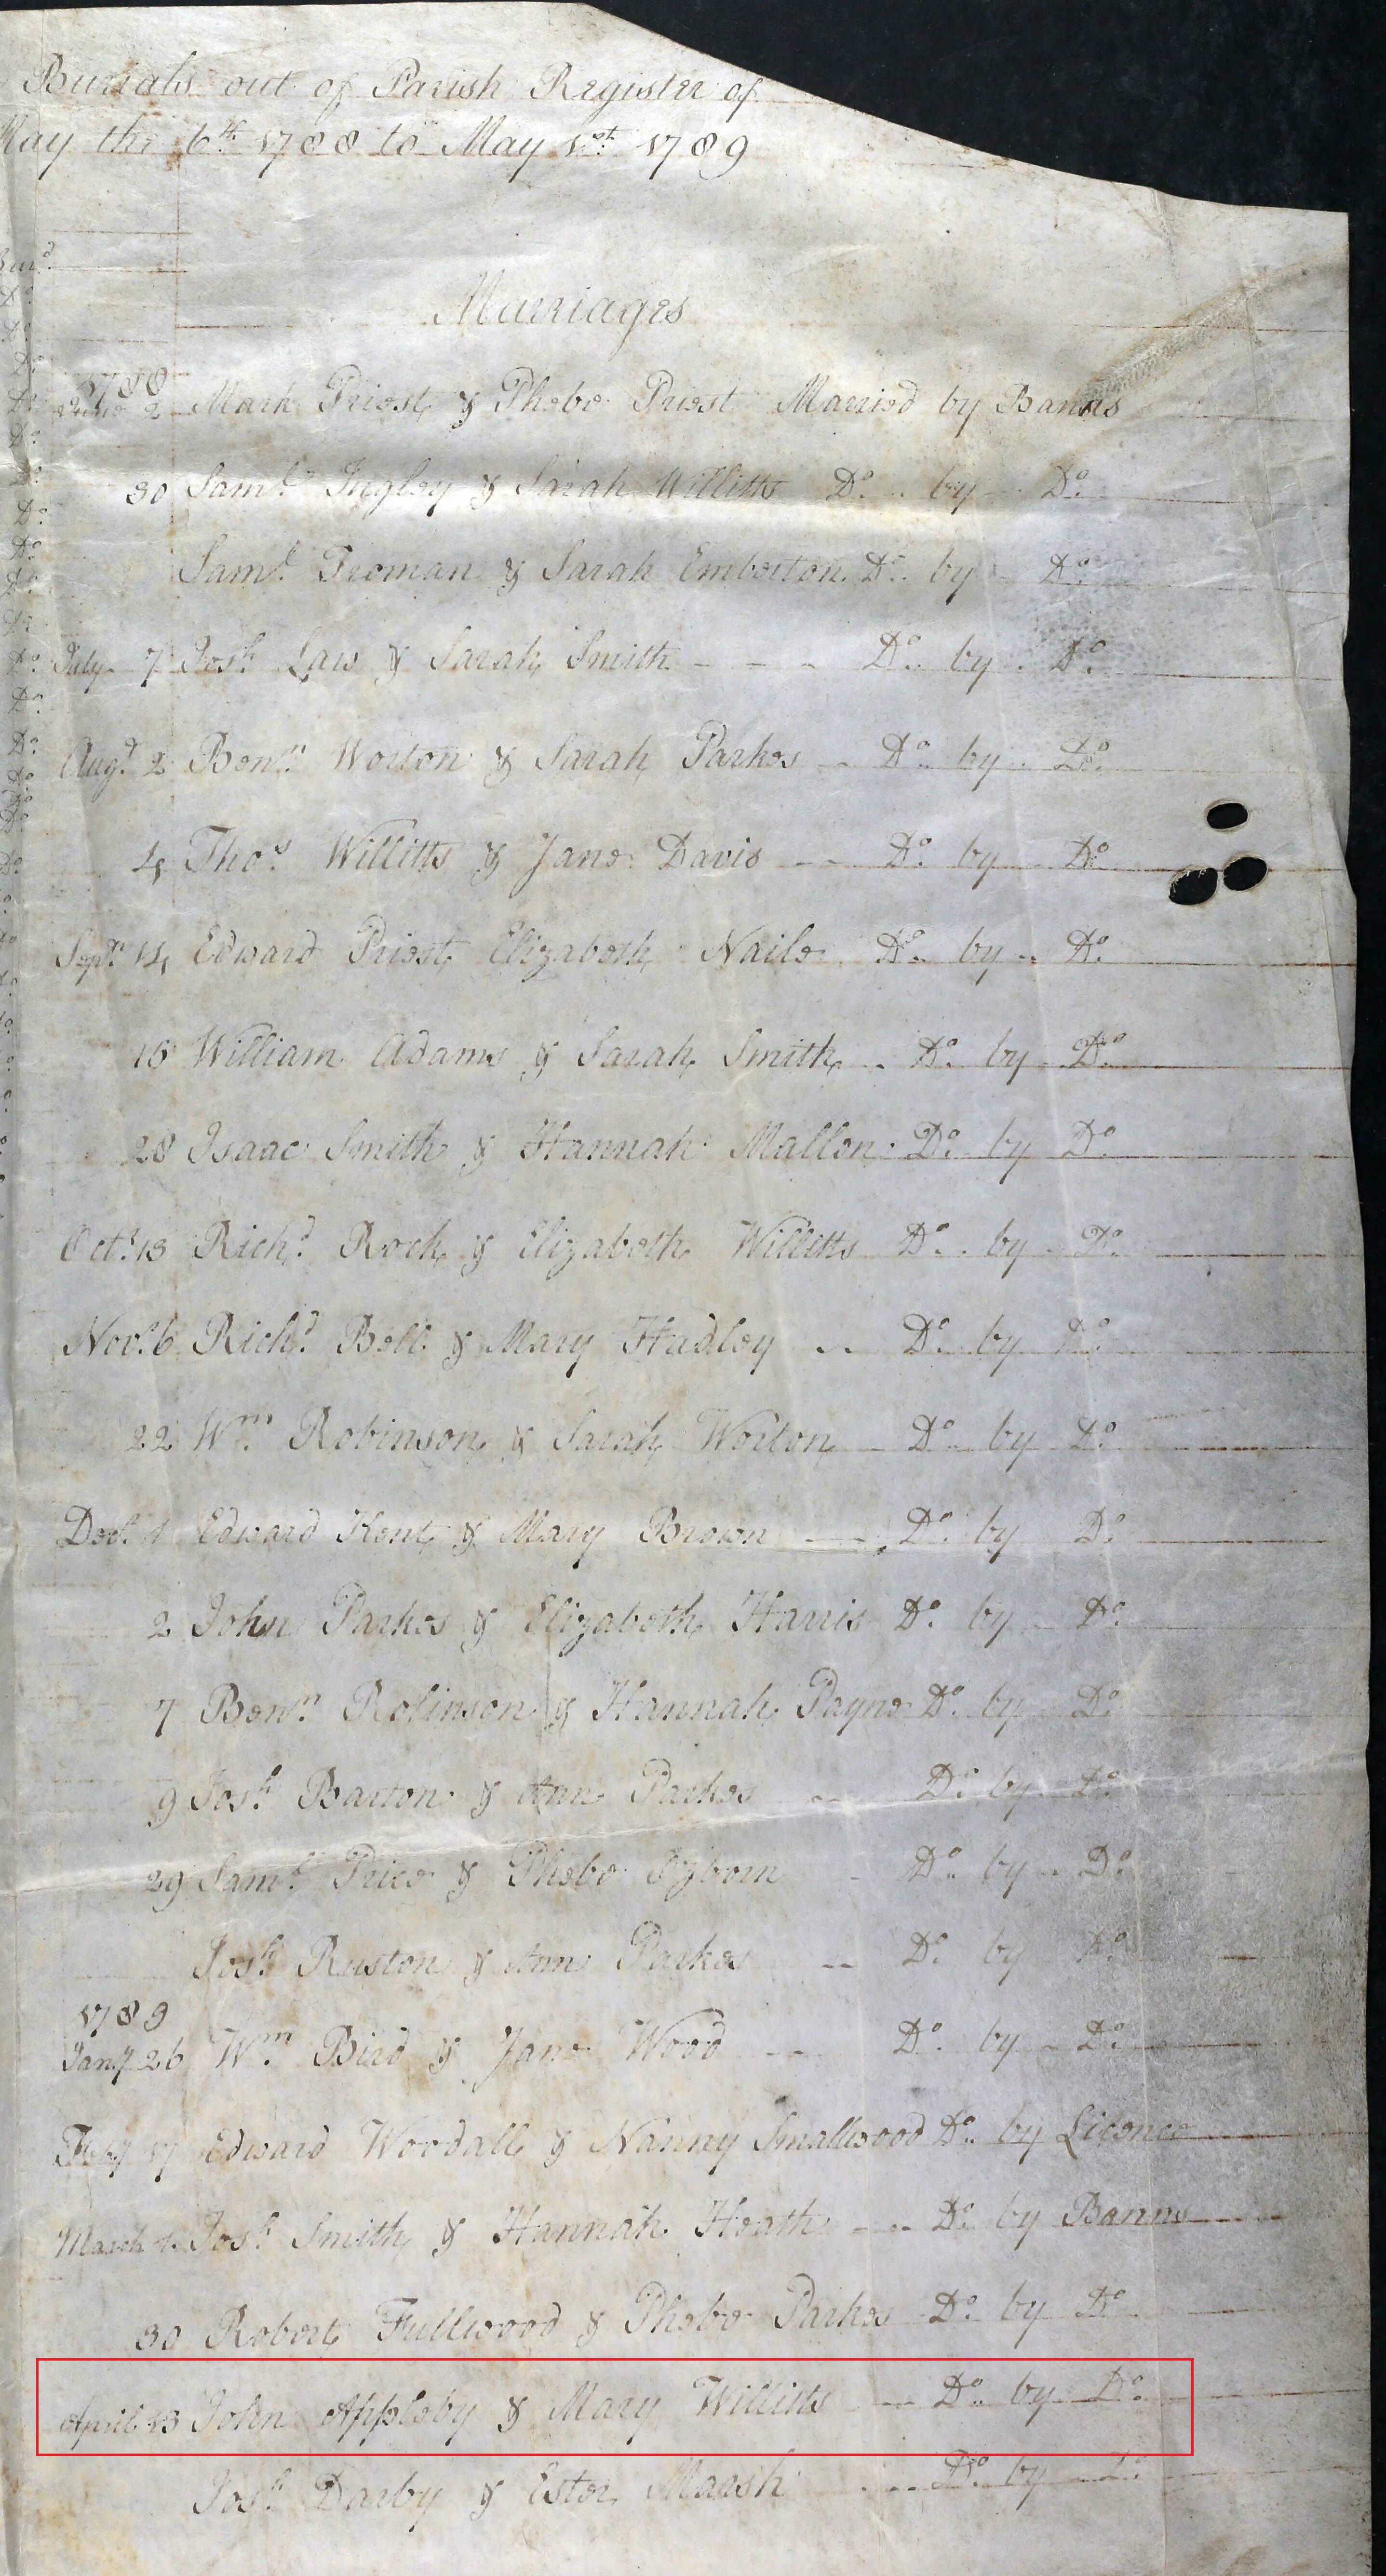 Burials out of Parish Register of
May the 6th 1788 to May 1st 1789
Marriages
1788
June 2 Mark Priest & Phebe Priest Married by Banns
30 Saml. Ingley & Sarah Willitts Do. by Do.
Saml. Froman & Sarah Emberton Do. by Do.
July 7 Josh. Law & Sarah Smith - - - Do. by Do.
Augt. 2 Benn. Worton & Sarah Parkes - Do. by Do.
4 Thos. Willitts & Jane Davis - - Do. by Do.
Sepr. 14 Edward Priest Elizabeth Naile Do. by Do.
16 William Adams & Sarah Smith - Do. by Do.
28 Isaac Smith & Hannah Mallen Do. by Do.
Octr. 13 Richd. Rock & Elizabeth Willitts Do. by Do.
Novr. 6 Richd. Bell & Mary Hadley - - Do. by Do.
22 Wm. Robinson & Sarah Worton - Do. by Do.
Decr. 1 Edward Kent & Mary Brown - Do. by Do.
2 John Parkes & Elizabeth Harris Do. by Do.
7 Benn. Robinson & Hannah Payne Do. by Do.
9 Josh. Barton & Ann Parkes - Do. by Do.
29 Saml. Price & Phebe - Do. by Do.
Josh. Ruston & Ann Parkes - - Do. by Do.
1789
Jany 26 Wm. Bird & Jane Wood - - Do. by Do.
Feby 17 Edward Woodall & Nanny Smallwood Do. by Licence
March 1 Josh. Smith & Hannah Heath - - Do. by Banns
30 Robert Fullwood & Phebe Parkes Do. by Do.
April 13 John Appleby & Mary Willitts - Do. by Do.
Josh. Darby & Ester Marsh - - Do. by Do.